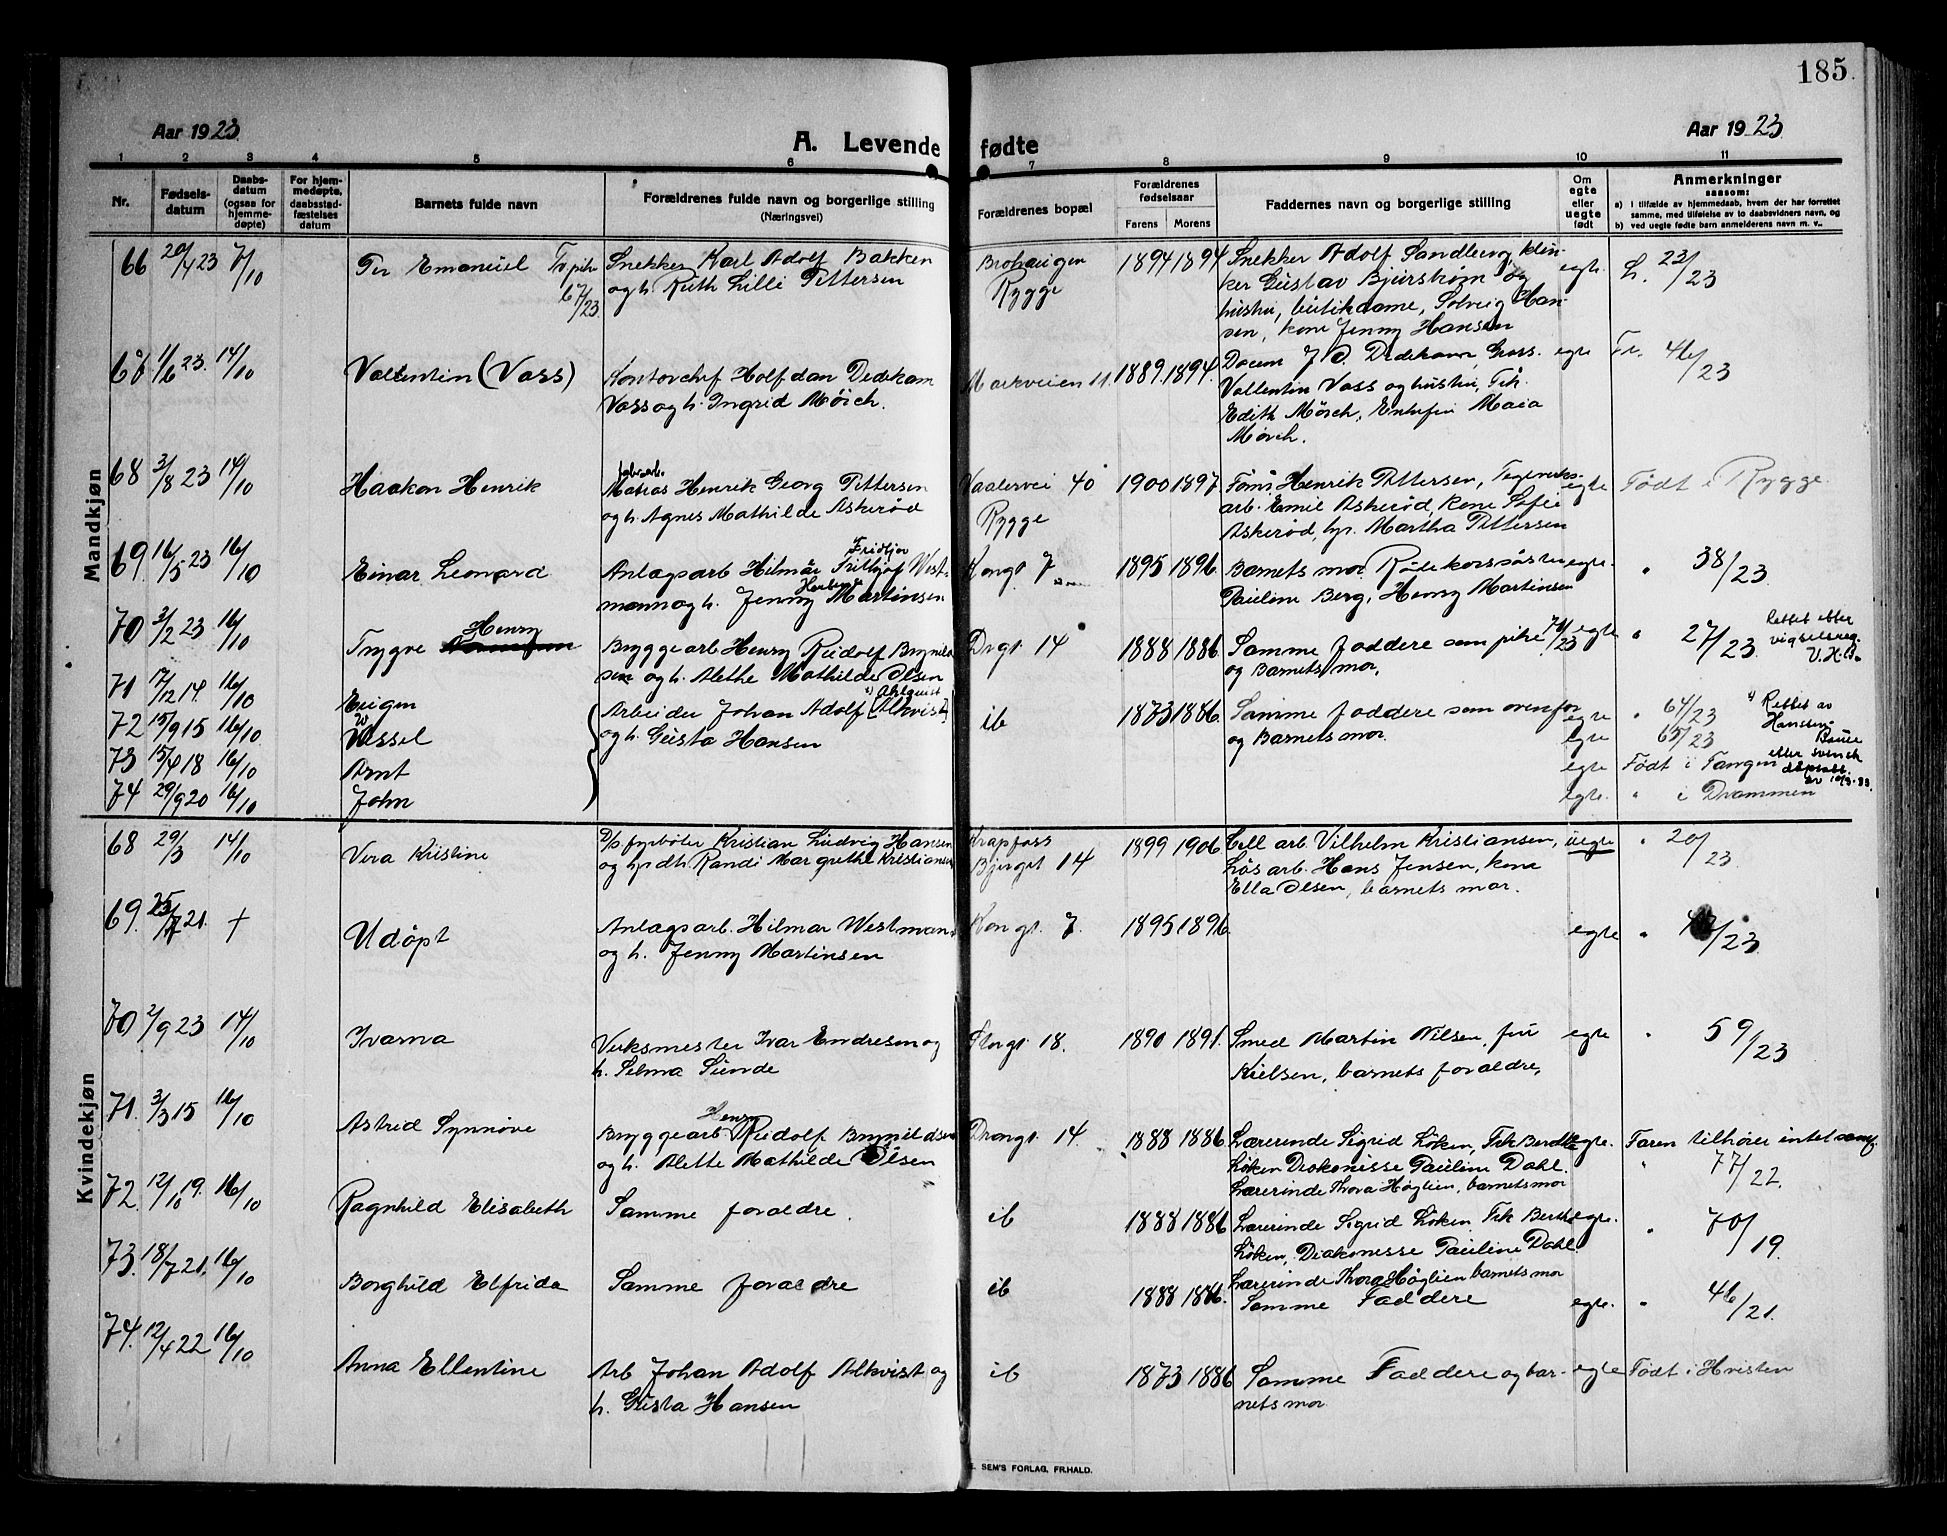 185.
Aar 1923 A. Levende fødte Aar 1923
1 2 3 4 5 6 7 8 9 10 11
Nr. Fødsels-datum Daabs-datum (ogsaa for hjemme-døpte) For hjem-medøpte, daabsstad-fæstelses datum Barnets fulde navn Forældrenes fulde navn og borgerlige stilling (Næringsvei) Forældrenes bopæl Forældrenes fødselsaar Farens Morens Faddernes navn og borgerlige stilling Om egte eller uegte født Anmerkninger saasom:
a) i tilfælde av hjemmedaab, hvem der har forrettet samme, med tilføielse av to daabsvidners navn, og
b) ved uegte fødte barn anmelderens navn m. v..
Mandkjøn
66 20/4 23 7/10 Per Emanuel Tv. pike 67/23. Snekker Karl Adolf Bakken Brohaugen 1894 1894 Snekker Adolf Sandberg, klin- egte L. 23/23
og h. Ruth Lilli Pettersen Rygge ker Gustav Bjurstrøm og
hustru, butikdame, Solveig Han-
sen, kone Jenny Hansen
68 1/6 23. 14/10 Vallentin (Vass) Kontorchef Halfdan Dedekam Markveien 11. 1889. 1894. Docem J. D. Dedekam, Gross. egte Fr. 46/23
Vass og h. Ingrid Mørch. Vallentin Vass og hustru, Frk.
Edith Mørch, Enkefru Maia
Mørch.
68 3/8 23 14/10 Haakon Henrik fabr.arb. Matias Henrik Georg Pettersen Vaalervei 40 1900 1897 Føms. Henrik Pettersen, Teglverks- egte Født i Rygge.
og h. Agnes Mathilde Askerød Rygge arb. Emil Askerød, kone Sofie
Askerød, hr. Martha Pettersen
69. 16/5 23 16/10 Einar Leonard Anlægsarb Hilmar Fritjof Fridtjov West- Kongt 7 1895 1896. Barnets mor. Røde korssøster egte. " 38/23.
mann og h. Jenny Martinsen Pauline Berg, Henry Martinsen
70 3/2 23 16/10 Trygve Henry Bryggearb Henry Rudolf Brynild- Drgt 14 1888 1886. Samme faddere som pike 71/23 egte " 27/23. Rettet efter vigselsreg. V.H.B.
sen og h. Alethe Mathilde Olsen og Barnets mor.
71 17/12 14. 16/10 Eugen Arbeider Johan Adolf [Alkvist] x) Ahlquist ib 1873 1886. Samme faddere som ovenfor egte " 64/23 x) Rettet av
72 15/9 15 16/10. Vessel og h. Gusta Hansen og Barnets mor. egte " 65/23 Hanssen-Bauer
73 15/4 18 16/10 Arnt egte Født i Tangen efter svensk
74 29/9 20 16/10 John egte. " i Drammen dåpsatt. av 10/3-33.
Kvindekjøn
68 29/3 14/10 Vera Kristine D/s fyrbøter Kristian Ludvig Hansen Krapfoss 1899 1906 Cell arb. Vilhelm Kristiansen, uegte " 20/23.
og hr dtr. Randi Margrethe Kristiansen Bjergt 14 Løsarb. Hans Jensen, kone
Ella Olsen, barnets mor.
69. 25/7 21. + Udøpt Anlægsarb. Hilmar Westmann Kongt. 7. 1895 1896. egte " /23.
og h. Jenny Martinsen
70 2/9 23 14/10 Ivarna Verksmester Ivar Endresen og Storgt 18. 1890 1891. Smed Martin Nilsen, fru egte " 59/23
h. Selma Sunde Kielsen, barnets forældre,
71. 3/3 15 16/10 Astrid Synnøve Bryggearb. Henry Rudolf Brynildsen Drongt. 14. 1888 1886. Lærerinde Sigrid Løken, Frk Berthe egte. Faren tilhører intet samf.
og h. Alette Mathilde Olsen Løken Diakonisse Pauline Dahl. " 77/22.
Lærerinde Thora Høglien, barnets mor
72. 12/10 19. 16/10 Ragnhild Elisabeth Samme forældre. ib 1888 1886 Lærerinde Sigrid Løken, Frk Berthe egte. " 70/19.
Løken, Diakonisse Pauline Dahl.
Lærerinde Thora Høglien barnets mor
73. 18/7 21. 16/10 Borghild Elfrida Samme forældre ib 1888 1886. Samme Faddere egte. " 46/21.
74. 12/4 22 16/10 Anna Ellentine Arb Johan Adolf Alkvist og ib 1873 1886 Samme Faddere og bar- egte Født i Hvisten
h. Gusta Hansen nets mor
E. SEM'S FORLAG, FR.HALD.